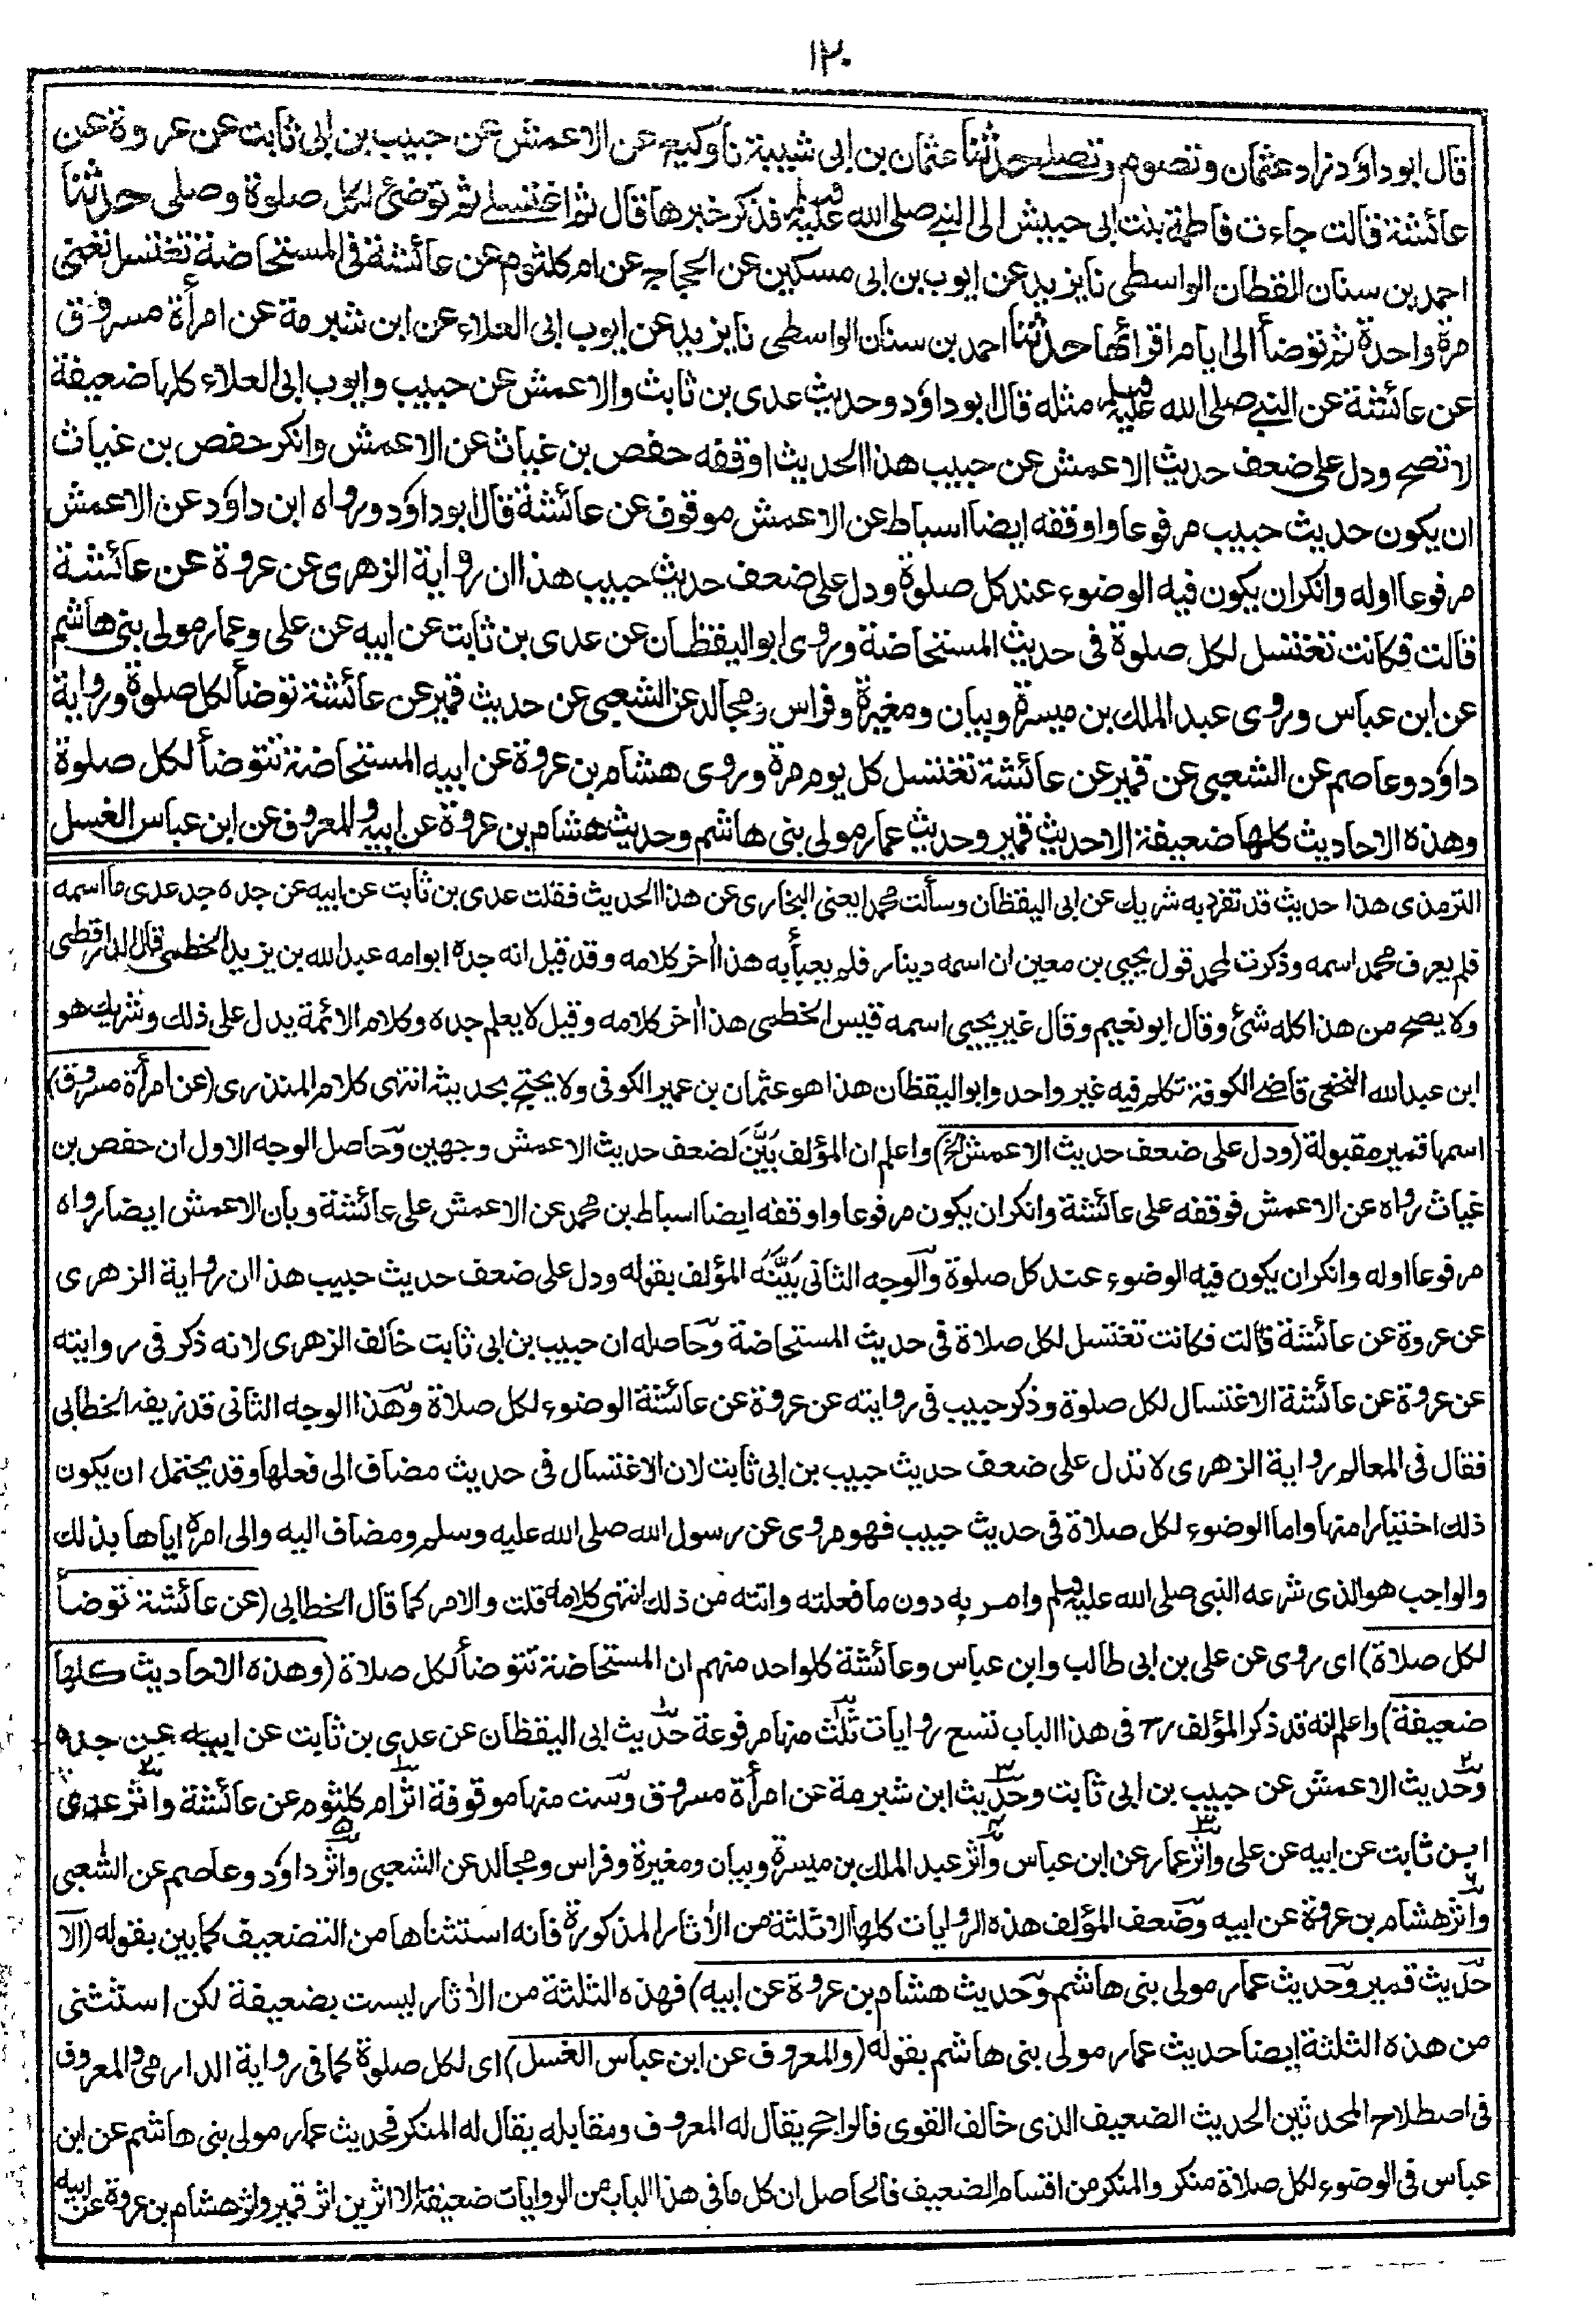 ١٢٠
قال ابو داؤد زاد عثمان وتصوم وتصلے حدثنا عثمان بن ابى شيبة نا وكيع عن الاعمش عن حبيب بن ابى ثابت عن عروة عن
عائشة قالت جاءت فاطمة بنت ابى حبيش الى النبے صلى الله عليه وسلم فذكر خبرها قال ثم اغتسلے ثم توضئ لكل صلوة وصلى حدثنا
احمد بن سنان القطان الواسطى نا يزيد عن ايوب بن ابى مسكين عن الحجاج عن ام كلثوم عن عائشة فى المستحاضة تغتسل تعنى
مرة واحدة ثم توضأ الى ايام اقرائها حدثنا احمد بن سنان الواسطى نا يزيد عن ايوب ابى العلاء عن ابن شبرمة عن امرأة مسروق
عن عائشة عن النبے صلى الله عليه وسلم مثله قال ابو داؤد وحديث عدى بن ثابت والاعمش عن حبيب وايوب ابى العلاء كلها ضعيفة
لا تصح ودل على ضعف حديث الاعمش عن حبيب هذا الحديث اوقفه حفص بن غياث عن الاعمش وانكر حفص بن غياث
ان يكون حديث حبيب مرفوعا واوقفه ايضا اسباط عن الاعمش موقوف عن عائشة قال ابو داؤد ورواه ابن داؤد عن الاعمش
مرفوعا اوله وانكر ان يكون فيه الوضوء عند كل صلوة ودل على ضعف حديث حبيب هذا ان رواية الزهرى عن عروة عن عائشة
قالت فكانت تغتسل لكل صلوة فى حديث المستحاضة وروى ابو اليقظان عن عدى بن ثابت عن ابيه عن على وعمار مولى بنى هاشم
عن ابن عباس وروى عبد الملك بن ميسرة وبيان ومغيرة وفراس ومجالد عن الشعبى عن حديث قمير عن عائشة توضأ لكل صلوة ورواية
داؤد وعاصم عن الشعبى عن قمير عن عائشة تغتسل كل يوم مرة وروى هشام بن عروة عن ابيه المستحاضة تتوضأ لكل صلوة
وهذه الاحاديث كلها ضعيفة الا حديث قمير وحديث عمار مولى بنى هاشم وحديث هشام بن عروة عن ابيه والمعروف عن ابن عباس الغسل
الترمذى هذا حديث قد تفرد به شريك عن ابى اليقظان وسألت محمدا يعنى البخارى عن هذا الحديث فقلت عدى بن ثابت عن ابيه عن جده جد عدى ما اسمه
فلم يعرف محمد اسمه وذكرت لمحمد قول يحيى بن معين ان اسمه دينار فلم يعبأ به هذا اٰخر كلامه وقد قيل انه جده ابو امه عبد الله بن يزيد الخطمى قال الدارقطنى
ولا يصح من هذا كله شئ وقال ابو نعيم وقال غير يحيى اسمه قيس الخطمى هذا اٰخر كلامه وقيل لا يعلم جده وكلام الائمة يدل على ذلك وشريك هو
ابن عبد الله النخعى قاضے الكوفة تكلم فيه غير واحد وابو اليقظان هذا هو عثمان بن عمير الكوفى ولا يحتج بحديثه انتهى كلام المنذرى (عن امرأة مسروق)
اسمها قمير مقبولة (ودل على ضعف حديث الاعمش الخ) واعلم ان المؤلف بَيَّنَ لضعف حديث الاعمش وجهين وحاصل الوجه الاول ان حفص بن
غياث رواه عن الاعمش فوقفه على عائشة وانكر ان يكون مرفوعا واوقفه ايضا اسباط بن محمد عن الاعمش على عائشة وبأن الاعمش ايضا رواه
مرفوعا اوله وانكر ان يكون فيه الوضوء عند كل صلوة والوجه الثانى بَيَّنَهُ المؤلف بقوله ودل على ضعف حديث حبيب هذا ان رواية الزهرى
عن عروة عن عائشة قالت فكانت تغتسل لكل صلاة فى حديث المستحاضة وحاصله ان حبيب بن ابى ثابت خالف الزهرى لانه ذكر فى روايته
عن عروة عن عائشة الاغتسال لكل صلوة وذكر حبيب فى روايته عن عروة عن عائشة الوضوء لكل صلاة وهذا الوجه الثانى قد زيفه الخطابى
فقال فى المعالم رواية الزهرى لا تدل على ضعف حديث حبيب بن ابى ثابت لان الاغتسال فى حديث مضاف الى فعلها وقد يحتمل ان يكون
ذلك اختيارا منها واما الوضوء لكل صلاة فى حديث حبيب فهو مروى عن رسول الله صلى الله عليه وسلم ومضاف اليه والى امره اياها بذلك
والواجب هو الذى شرعه النبى صلى الله عليه وسلم وامر به دون ما فعلته واتته من ذلك انتهى كلامه قلت والامر كما قال الخطابى (عن عائشة توضأ
لكل صلاة) اى روى عن على بن ابى طالب وابن عباس وعائشة كلواحد منهم ان المستحاضة تتوضأ لكل صلاة (وهذه الاحاديث كلها
ضعيفة) واعلم انه قد ذكر المؤلف رح فى هذا الباب تسع روايات ثلٰث منها مرفوعة حديث ابى اليقظان عن عدى بن ثابت عن ابيه عن جده
وحديث الاعمش عن حبيب بن ابى ثابت وحديث ابن شبرمة عن امرأة مسروق وست منها موقوفة اثر ام كلثوم عن عائشة واثر عدى
ابن ثابت عن ابيه عن على واثر عمار عن ابن عباس واثر عبد الملك بن ميسرة وبيان ومغيرة وفراس ومجالد عن الشعبى واثر داؤد وعاصم عن الشعبى
واثر هشام بن عروة عن ابيه وضعف المؤلف هذه الروايات كلها الا ثلثة من الاٰثار المذكورة فانه استثناها من التضعيف كما بين بقوله (الا
حديث قمير وحديث عمار مولى بنى هاشم وحديث هشام بن عروة عن ابيه) فهذه الثلثة من الاٰثار ليست بضعيفة لكن استثنى
من هذه الثلثة ايضا حديث عمار مولى بنى هاشم بقوله (والمعروف عن ابن عباس الغسل) اى لكل صلوة كما فى رواية الدارمى والمعروف
فى اصطلاح المحدثين الحديث الضعيف الذى خالف القوى فالراجح يقال له المعروف ومقابله يقال له المنكر فحديث عمار مولى بنى هاشم عن ابن
عباس فى الوضوء لكل صلاة منكر والمنكر من اقسام الضعيف فالحاصل ان كل ما فى هذا الباب من الروايات ضعيفة الا اثرين اثر قمير واثر هشام بن عروة عن ابيه